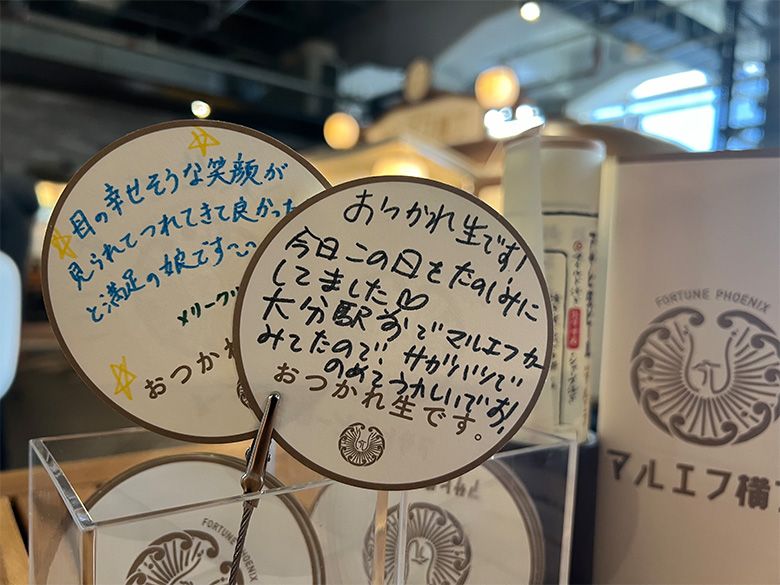 目の幸せそうな笑顔が
見られてつれてきて良かった
と満足の娘です
メリーク
おつかれ
おつかれ生です!
今日この日をたのしみに
してました♡
大分駅前でマルエフカー
みてたので、サガリバリで
のめてうれしいでお!
おつかれ生です。
FORTUNE PHOENIX
マルエフ横
FORTUNE PHOENIX